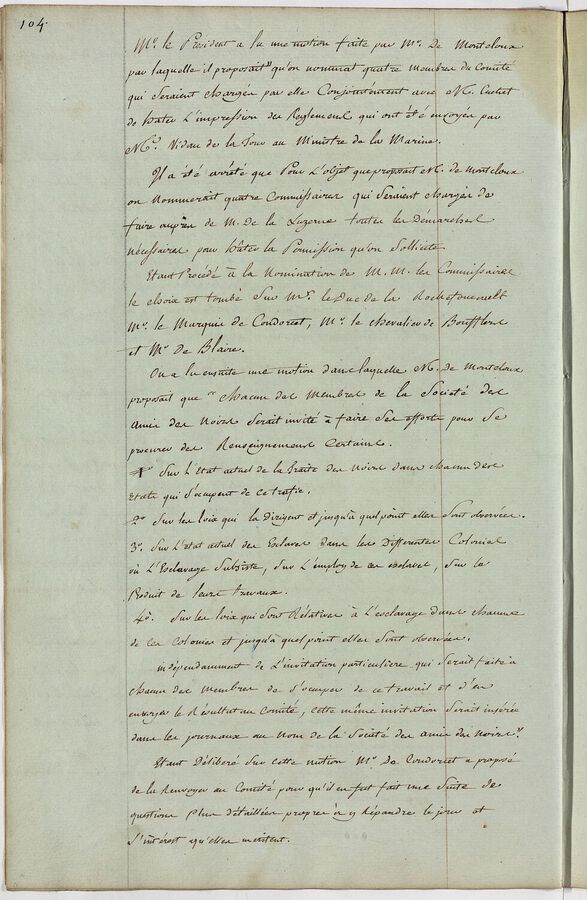 104.
Mr. le Président a lu une motion faite par Mr. De Montcloux
par laquelle il proposait "qu'on nommat quatre membres du Comité
qui seraient chargés par elle Conjointement avec M.
de hater L'impression des Reglemens qui ont été envoyés par
Mr. Vidau de la Tour au Ministre de la Marine.
Il a été arrêté que Pour L'objet que proposait M. de Montcloux
on Nommerait quatre Commissaires qui Seraient chargés de
faire auprès de M. De la Luzerne toutes les Démarches
nécessaires pour hâter la Permission qu'on Sollicite
Etant Procédé à la Nomination de M.M. les Commissaires
le choix est tombé Sur Mrs. le Duc de la Rochefoucault
Mr. le Marquis de Condorcet, Mr. le chevalier de Boufflers
et Mr De Blaire.
On a lu ensuite une motion dans laquelle M. de Montcloux
proposait que " chacun des Membres de la Société des
Amis des Noirs Serait invité à faire Ses efforts pour Se
procurer des Renseignemens Certains.
1o Sur L'Etat actuel de la Traite des Noirs dans chacun des
Etats qui S'occupent de ce trafic.
2o Sur les loix qui la Dirigent et jusqu'à quel point elles Sont observées.
3o. Sur L'etat actuel des Esclaves dans les Differentes Colonies
où L'Esclavage Subsiste, Sur L'employ de ces esclaves, Sur le
Produit de leurs travaux.
4o. Sur les loix qui Sont Rélatives à L'esclavage dans chacune
de ces Colonies et jusqu'à quel point elles Sont observées.
indépendamment de L'invitation particuliere qui Serait faite à
chacun des membres de S'occuper de ce travail et d'en
envoyer le Résultat au Comité, cette même invitation Serait insérée
dans les journaux au Nom de la Société des amis des Noirs".
Etant Déliberé Sur cette motion Mr. De Condorcet a proposé
de la Renvoyer au Comité pour qu'il en fut fait une Suite de
questions plus détaillées propres à y Répandre le jour et
L'intérêt qu'elles méritent.